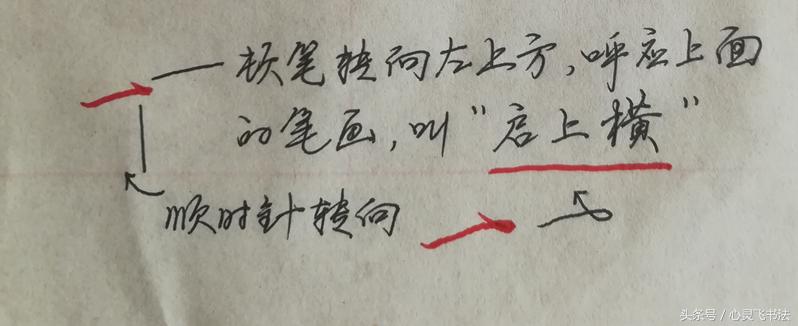 顿笔转向左上方,呼应上面
的笔画,叫"启上横"
顺时针转向
头条号 / 心灵飞书法